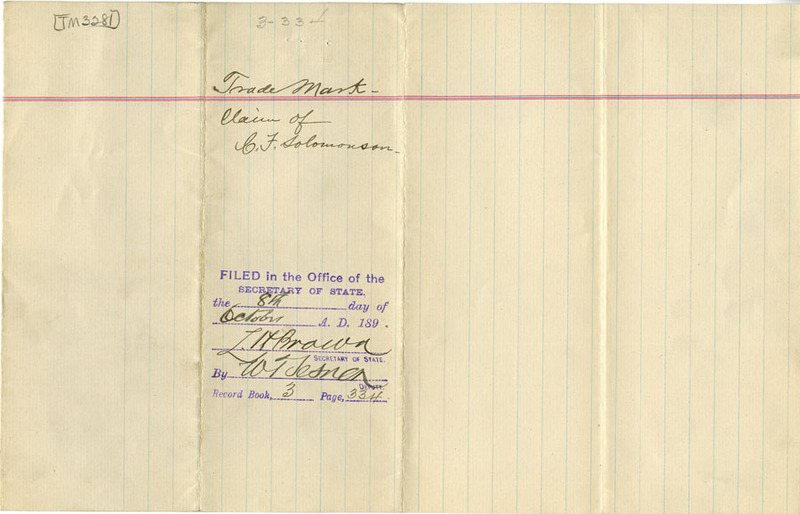 [TM3281]
3-334
Trade Mark-
Claim of
C. F. Solomonson-
FILED in the Office of the
SECRETARY OF STATE.
the 8th day of
October A. D. 189 .
L. H. Brown
SECRETARY OF STATE.
By W T
DEPUTY.
Record Book, 3 Page, 334